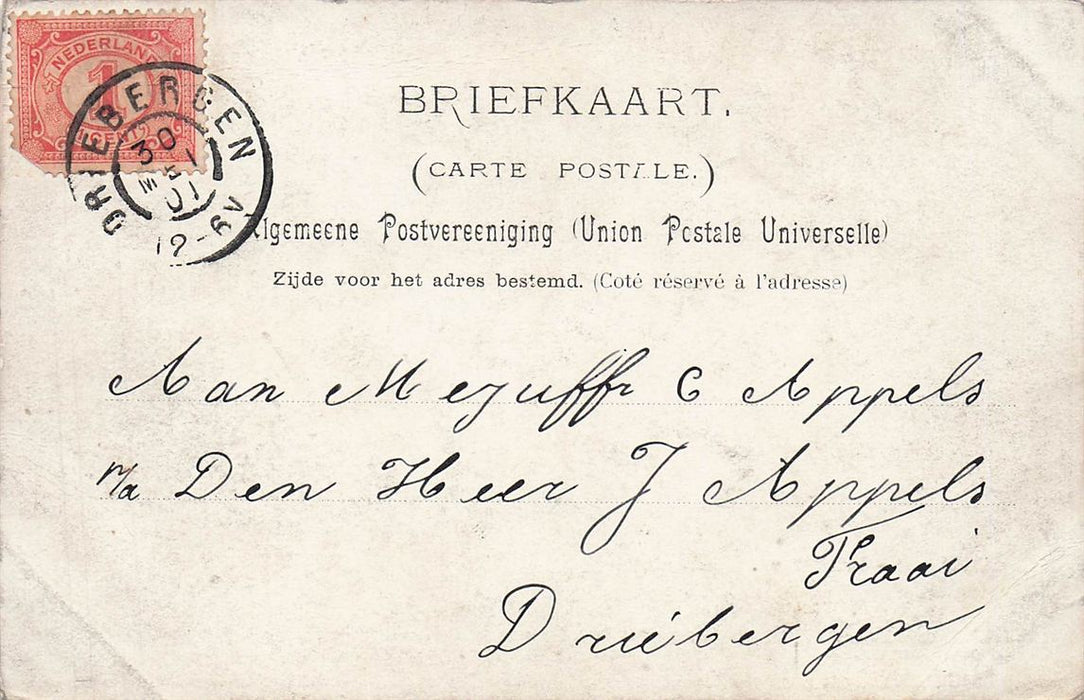 NEDERLAND
1
CENT
DRIEBERGEN
30
MEI
01
12-6V
BRIEFKAART.
(CARTE POSTALE.)
Algemeene Postvereeniging (Union Postale Universelle)
Zijde voor het adres bestemd. (Coté réservé à l'adresse)
Aan Mejuffr C Appels
p/a Den Heer J Appels
Traai
Driebergen